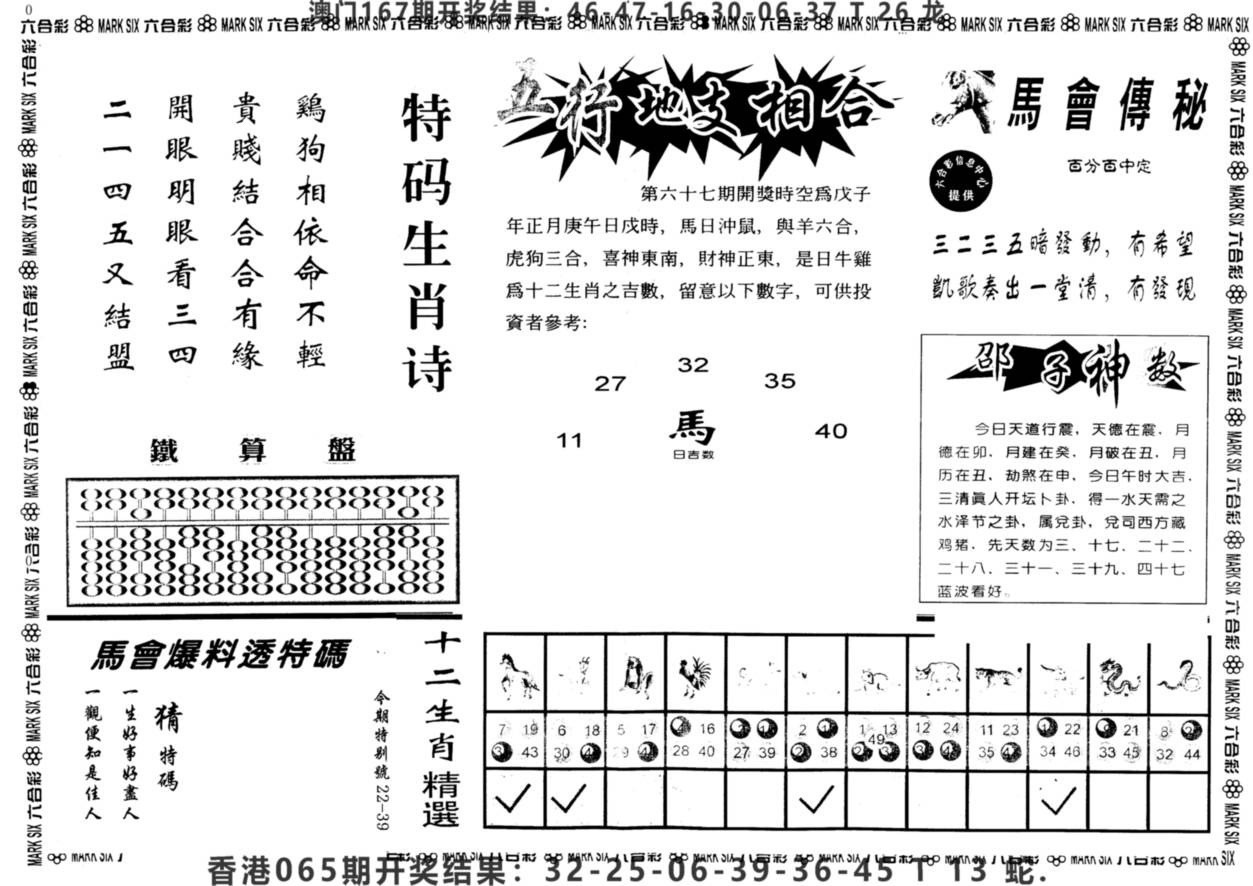 澳门167期开奖结果：46-47-16-30-06-37 T 26 龙
0
六合彩 MARK SIX 六合彩 MARK SIX 六合彩 MARK SIX 六合彩 MARK SIX 六合彩 MARK SIX 六合彩 MARK SIX 六合彩 MARK SIX 六合彩 MARK SIX 六合彩 MARK SIX 六合彩 MARK SIX
特码生肖诗
鷄狗相依命不輕
貴賤結合合有緣
開眼明眼看三四
二一四五又結盟
鐵算盤
五行地支相合
第六十七期開獎時空爲戊子
年正月庚午日戍時，馬日沖鼠，與羊六合，
虎狗三合，喜神東南，財神正東，是日牛雞
爲十二生肖之吉數，留意以下數字，可供投
資者參考：
32
27
35
11
馬
40
日吉数
馬會傳秘
六合彩信息中心
提供
百分百中定
三二三五暗發動，有希望
凱歌奏出一堂清，有發現
邵子神数
今日天道行震，天德在震．月
德在卯、月建在癸，月破在丑，月
历在丑，劫煞在申，今日午时大吉．
三清眞人开坛卜卦．得一水天需之
水泽节之卦，属兌卦，兌司西方藏
鸡猪．先天数为三、十七、二十二、
二十八、三十一、三十九、四十七
蓝波看好。
馬會爆料透特碼
猜特碼
一生好事好盡人
一觀便知是佳人
今期特别號22-39
十二生肖精選
7 19 6 18 5 17 16 2 1 13 12 24 11 23 22 21 8
43 30 29 28 40 27 39 38 49 35 34 46 33 45 32 44
香港065期开奖结果：32-25-06-39-36-45 T 13 蛇.